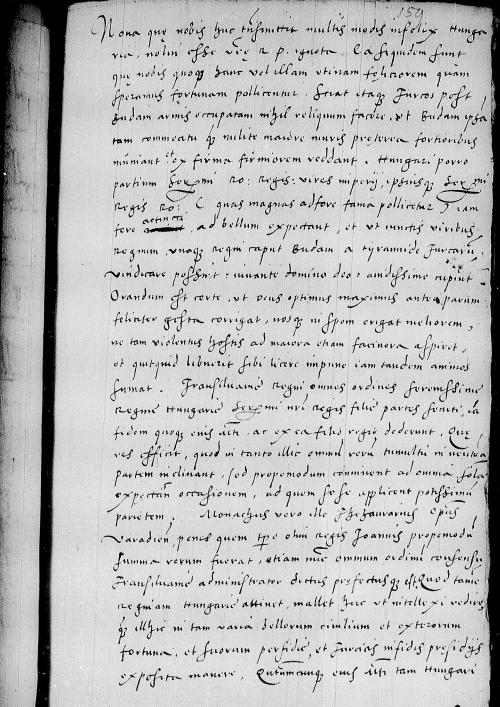 159
Nova quę nobis huc transmittit multis modis infelix Hunga
ria, nolui esse v̄rę R. p. ignota. Ea siquidem sunt
quę nobis quoqʒ hanc vel illam utinam feliciorem quam
speramus fortunam pollicentur. Sciat itaqʒ Turcos post
Budam armis occupatam nihil reliquum facere, ut Budam ipsā
tam commeatu qʒ milite maiore muris preterea fortioribus
muniant et ex firma firmiorem reddant. Hungari porro
partium Serᵐⁱ Ro: Regis: vires imperij, ipsiusqʒ Serᵐⁱ
Regis Ro: ( quas magnas adfore fama pollicetur ) iam
fere accincti, ad bellum expectant, et ut cunctis viribus
regnum, unaqʒ regni caput Budam a tyrannide Turcarū,
vindicare possint: iuvante domino deo: audissime cupiūt
Orandum est certe, ut Deus optimus maximus antea parum
feliciter gesta corrigat, nosqʒ in spem erigat meliorem,
ne tam violentus hostis ad maiora etiam facinora aspiret,
et quicquid libuerit sibi licere impune iam tandem animos
sumat. Transilvanię regni omnes ordines serenissimę
Reginę Hungarię Serᵐⁱ nri regis filię partes secuti, iā
fidem quoqʒ eius Mᵗⁱ ac ex ea filio regio dederunt. Quę
res efficit, quod in tanto illic omnium rerū tumultu in neutrā
partem inclinant, sed propemodum connivent ad omnia sola
expectātˢ occasionem, ad quem sese applicent potissimū
parietem. Monachus vero ille Thezaurarius Ep̄us
Varadień, penes quem tpe olim regis Joannis propemodū
summa rerum fuerat, etiam nūc omnium ordinū consensu
Transilvanię administrator dictus prefectusqʒ est. Quod tamē
reginam Hungarię attinet, mallet huc ut intellexi redire
qʒ illhic in tam varia bellorum civilium et exterorum
fortuna, et suorum perfidię, et Turcicis infidis presidijs
exposita manere. Qutumcunqʒ eius Mᵗⁱ tam Hungari